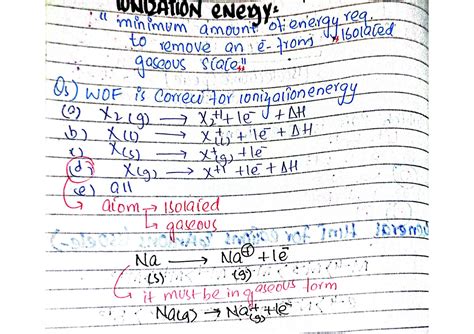 IONIZATION energy:-
"minimum amount of energy req.
to remove an e- from isolated
gaseous state"
Qs) WOF is correct for ionization energy
(a) X2(g) → X2+ + 1e- + ΔH
b) X(l) → X+(l) + 1e- + ΔH
c) X(s) → X+(g) + 1e-
(d) X(g) → X+1 + 1e- + ΔH
e) all
atom → isolated
→ gaseous
Na(s) → Na+(g) + 1e-
it must be in gaseous form
Na(g) → Na+(g) + 1e-